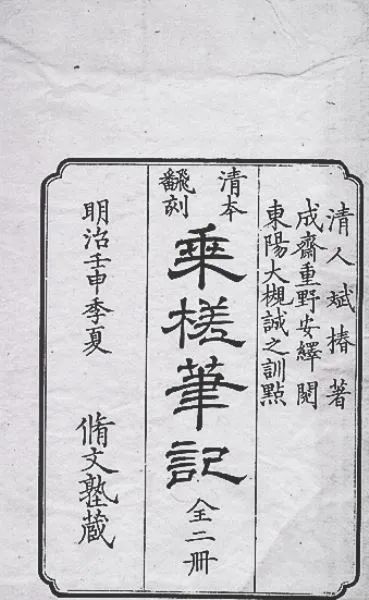 清人斌椿著
成齋重野安繹閲
東陽大槻誠之訓點
清本
飜刻
乘槎筆記
全二冊
明治壬申季夏
脩文塾蔵